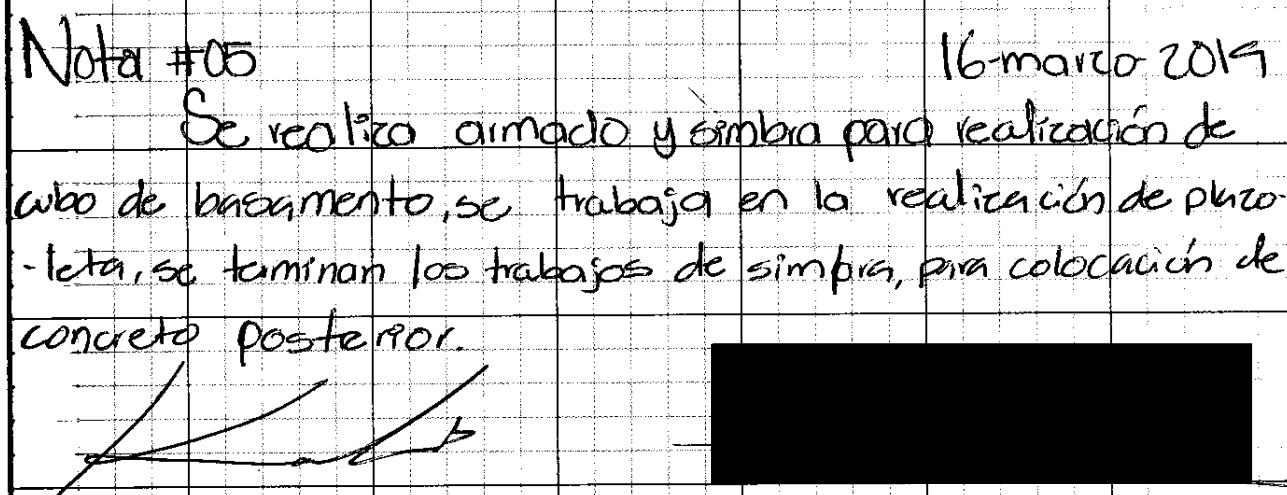 Nota #05 16-marzo 2019
Se realiza armado y simbra para realización de
cubo de basamento, se trabaja en la realización de plazo-
-leta, se terminan los trabajos de simbra, para colocación de
concreto posterior.